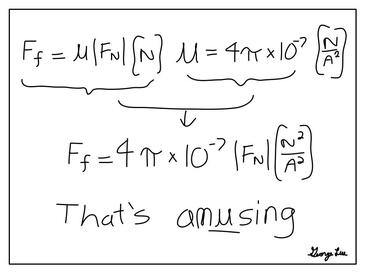 F_f = μ|F_N| [N] μ = 4π×10⁻⁷ [N/A²]
F_f = 4π×10⁻⁷ |F_N| [N²/A²]
That's amusing
George Lee